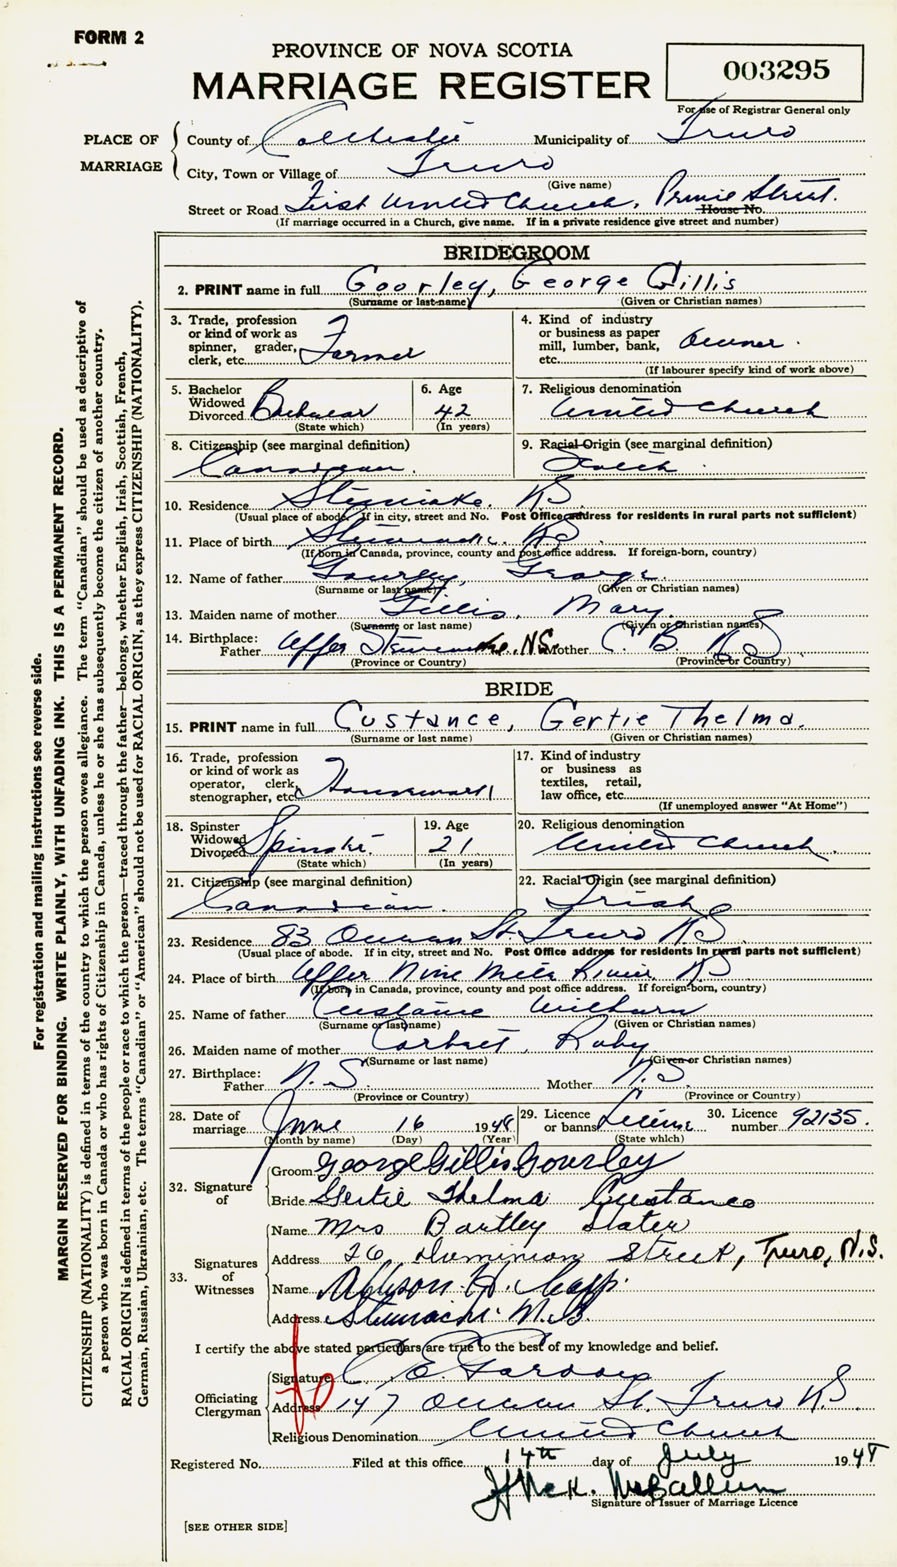 FORM 2
PROVINCE OF NOVA SCOTIA
MARRIAGE REGISTER
003295
For use of Registrar General only
PLACE OF MARRIAGE
County of Colchester Municipality of Truro
City, Town or Village of Truro
(Give name)
Street or Road First United Church, Prince Street. House No.
(If marriage occurred in a Church, give name. If in a private residence give street and number)
BRIDEGROOM
2. PRINT name in full Goorley, George Gillis
(Surname or last name) (Given or Christian names)
3. Trade, profession or kind of work as spinner, grader, clerk, etc. Farmer
4. Kind of industry or business as paper mill, lumber, bank, etc. Owner.
(If labourer specify kind of work above)
5. Bachelor Widowed Divorced Bachelor
(State which)
6. Age 42
(In years)
7. Religious denomination United Church
8. Citizenship (see marginal definition) Canadian.
9. Racial Origin (see marginal definition) Scotch.
10. Residence Stewiacke, NS
(Usual place of abode. If in city, street and No. Post Office address for residents in rural parts not sufficient)
11. Place of birth Stewiacke NS
(If born in Canada, province, county and post office address. If foreign-born, country)
12. Name of father Gourley, George.
(Surname or last name) (Given or Christian names)
13. Maiden name of mother Gillis, Mary.
(Surname or last name) (Given or Christian names)
14. Birthplace: Father Upper Stewiacke, N.S. Mother C. B. NS
(Province or Country) (Province or Country)
BRIDE
15. PRINT name in full Custance, Gertie Thelma.
(Surname or last name) (Given or Christian names)
16. Trade, profession or kind of work as operator, clerk, stenographer, etc. Housework
17. Kind of industry or business as textiles, retail, law office, etc.
(If unemployed answer "At Home")
18. Spinster Widowed Divorced Spinster
(State which)
19. Age 21
(In years)
20. Religious denomination United Church.
21. Citizenship (see marginal definition) Canadian.
22. Racial Origin (see marginal definition) Irish
23. Residence 83 Queen St. Truro NS
(Usual place of abode. If in city, street and No. Post Office address for residents in rural parts not sufficient)
24. Place of birth Upper Nine Mile River NS
(If born in Canada, province, county and post office address. If foreign-born, country)
25. Name of father Custance Wilburn
(Surname or last name) (Given or Christian names)
26. Maiden name of mother Ruby
(Surname or last name) (Given or Christian names)
27. Birthplace: Father N.S. Mother N.S.
(Province or Country) (Province or Country)
28. Date of marriage June 16 1948
(Month by name) (Day) (Year)
29. Licence or banns License
(State which)
30. Licence number 92135.
32. Signature of
Groom George Gillis Gourley
Bride Gertie Thelma Custance
33. Signatures of Witnesses
Name Mrs Bartley Slater
Address 26, Dominion Street, Truro, N.S.
Name
Address Stewiacke N.S.
I certify the above stated particulars are true to the best of my knowledge and belief.
Officiating Clergyman
Signature C. E.
Address 147 Queen St. Truro NS
Religious Denomination United Church
Registered No. Filed at this office 14th day of July 1948
McCallum
Signature of Issuer of Marriage Licence
[SEE OTHER SIDE]
For registration and mailing instructions see reverse side.
MARGIN RESERVED FOR BINDING. WRITE PLAINLY, WITH UNFADING INK. THIS IS A PERMANENT RECORD.
CITIZENSHIP (NATIONALITY) is defined in terms of the country to which the person owes allegiance. The term "Canadian" should be used as descriptive of
a person who was born in Canada or who has rights of Citizenship in Canada, unless he or she has subsequently become the citizen of another country.
RACIAL ORIGIN is defined in terms of the people or race to which the person—traced through the father—belongs, whether English, Irish, Scottish, French,
German, Russian, Ukrainian, etc. The terms "Canadian" or "American" should not be used for RACIAL ORIGIN, as they express CITIZENSHIP (NATIONALITY).